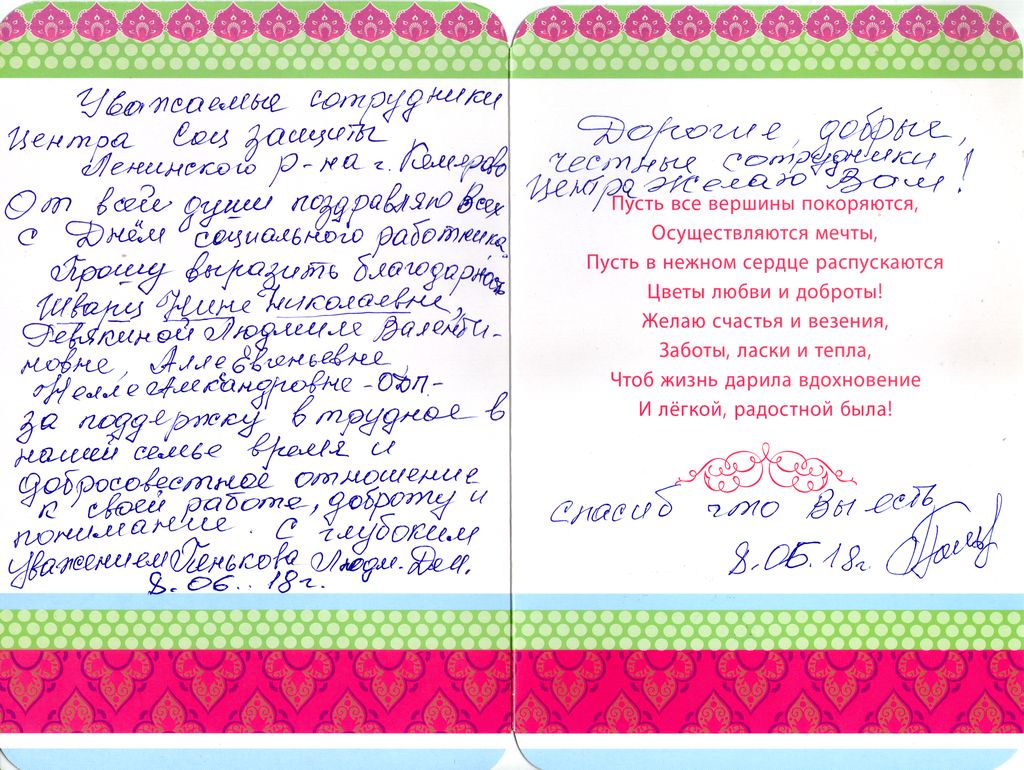 Уважаемые сотрудники
Центра Соц защиты
Ленинского р-на г. Кемерово
От всей души поздравляю Всех
с Днём социального работника.
Прошу выразить благодарность
Шварц Нине Николаевне,
Ревякиной Людмиле Валенти-
новне, Алле Евгеньевне
Нелле Александровне -ОДП-
за поддержку в трудное в
нашей семье время и
добросовестное отношение
к своей работе, доброту и
понимание. С глубоким
уважением Пенькова Людм. Дем.
8.06.18г.
Дорогие, добрые,
честные сотрудники
Центра желаю Вам!
Пусть все вершины покоряются,
Осуществляются мечты,
Пусть в нежном сердце распускаются
Цветы любви и доброты!
Желаю счастья и везения,
Заботы, ласки и тепла,
Чтоб жизнь дарила вдохновение
И лёгкой, радостной была!
спасиб что Вы есть
8.06.18г.